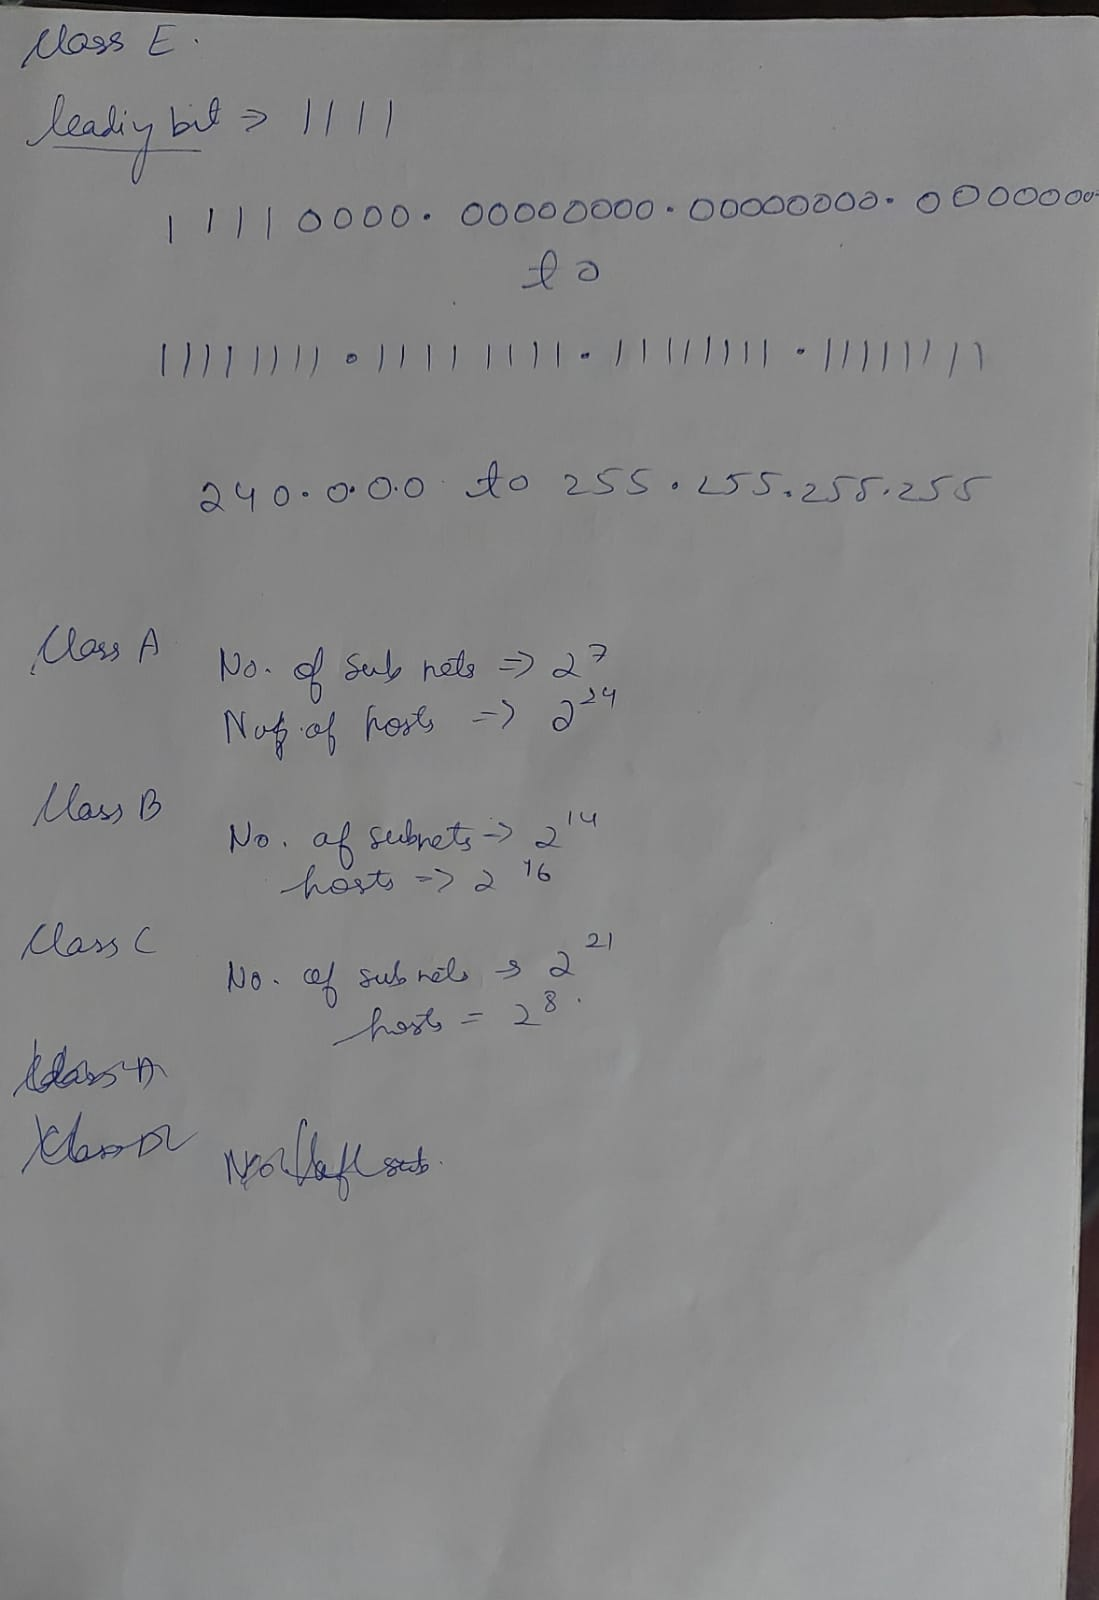 Class E.
leading bit => 1111
11110000. 00000000. 00000000. 00000000
to
11111111.11111111.11111111.11111111
240.0.0.0 to 255.255.255.255
Class A
No. of Sub nets => 2^7
No. of hosts => 2^24
Class B
No. of subnets => 2^14
hosts => 2^16
Class C
No. of subnets → 2^21
hosts = 2^8.
Class A
Class D
sub.